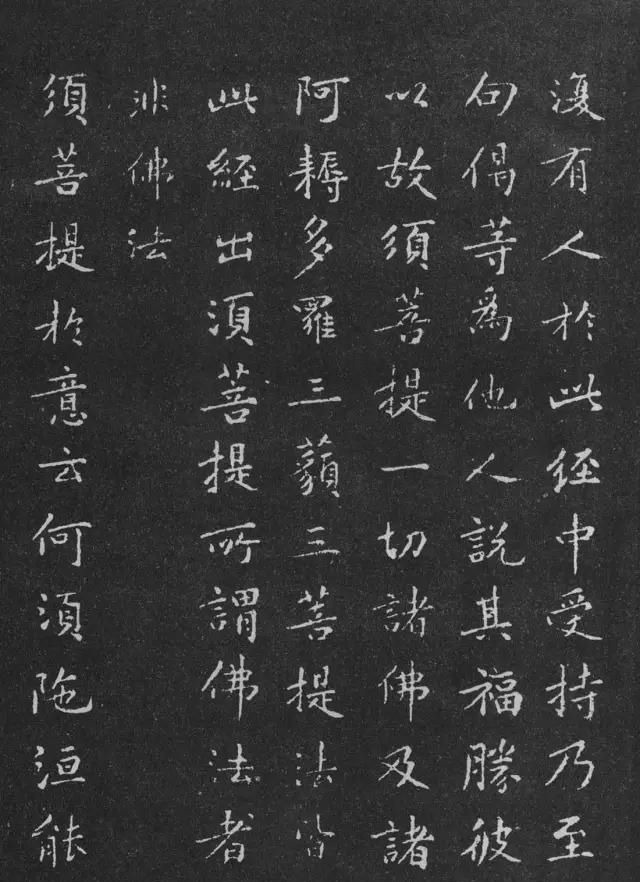 復有人於此経中受持乃至
句偈等為他人說其福勝彼
以故須菩提一切諸佛及諸
阿耨多羅三藐三菩提法皆
此經出須菩提所謂佛法者
非佛法
須菩提於意云何須陁洹能